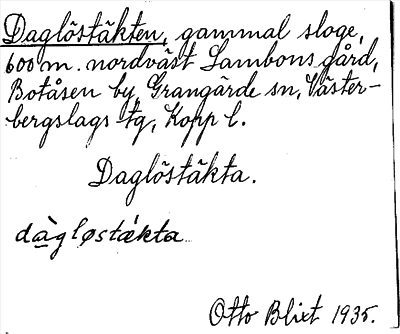 Daglöstäkten, gammal sloge,
600 m. nordväst Lambons gård,
Botåsen by, Grangärde sn, Väster-
bergslags tg, Kopp l.
Daglöstäkta.
dàgløstǽkta
Otto Blixt 1935.